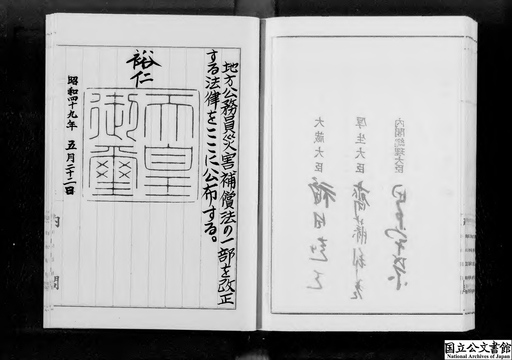 地方公務員災害補償法の一部を改正
する法律をここに公布する。
裕仁
天皇
御璽
昭和四十九年 五月二十二日
内閣
内閣総理大臣
厚生大臣
大蔵大臣 福田赳夫
国立公文書館
National Archives of Japan